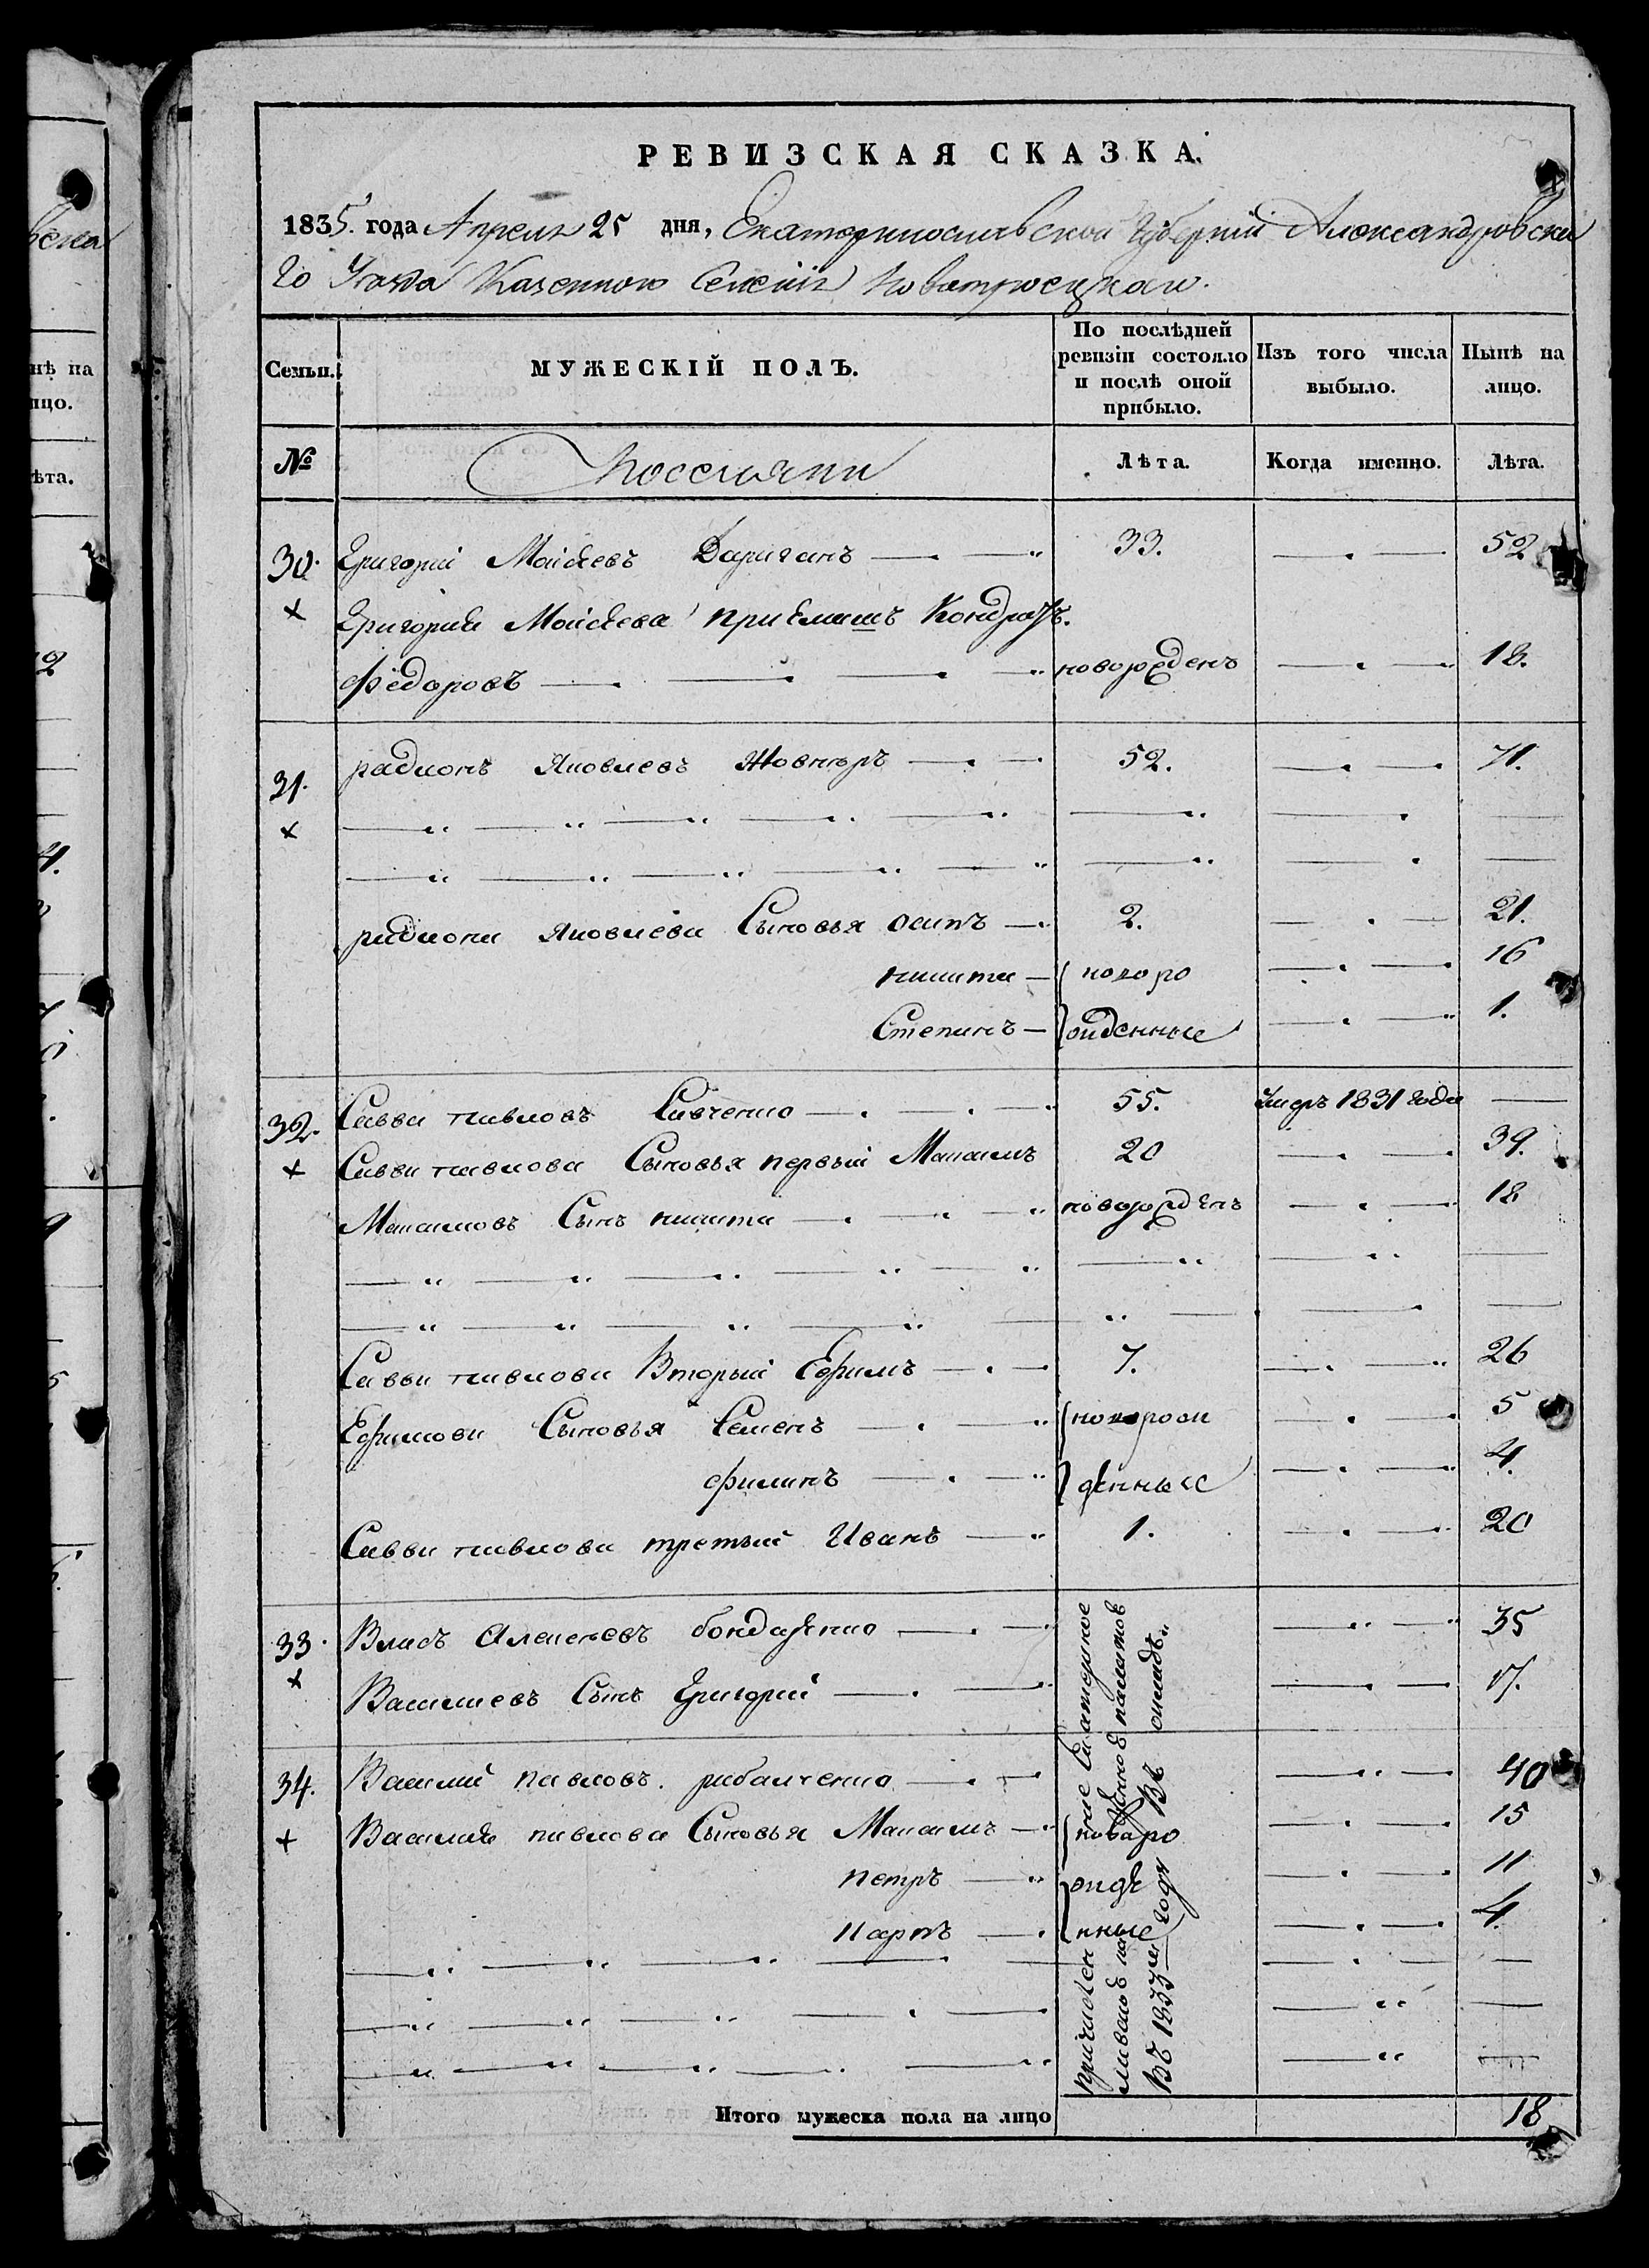 РЕВИЗСКАЯ СКАЗКА.
1835. года Апреля 25 дня, Екатеринославской Губерній Александровска
го Уезда Казенного Селенія Новатроецкаго.
Семьи. МУЖЕСКІЙ ПОЛЪ. По послѣдней ревизіи состояло и послѣ оной прибыло. Изъ того числа выбыло. Нынѣ на лицо.
№ Лѣта. Когда именно. Лѣта.
30. Григорій Моісѣевъ 33. 52
Григорія Моісѣева приѣмишъ Кондратъ.
Федоровъ новорожденъ 18.
31. радионъ Яковлевъ Жовниръ 52. 71.
радиона Яковлева Сыновья осипъ 2. 21.
никита новоро 16
Степанъ жденные 1.
32. Савва павловъ Савченко 55. Умеръ 1831 года
Саввы павлова Сыновья первый Максимъ 20 39.
Максимовъ Сынъ никита новорожденъ 18
Саввы павлова Вторый Ефимъ 7. 26
Ефимовы Сыновья Семенъ новорож 5
филипъ денные 4.
Саввы павлова третый Иванъ 1. 20
33. Власъ Алексеевъ бондаренко 35
Василиевъ Сынъ Григорій 17.
34. Василий павловъ. рибалченко 40
Василия павлова Сыновья Максимъ новоро 15
петръ жде 11
карпъ нные 4.
Въ 1833м году
Итого мужеска пола на лицо 18
нѣ на
лицо.
ѣта.